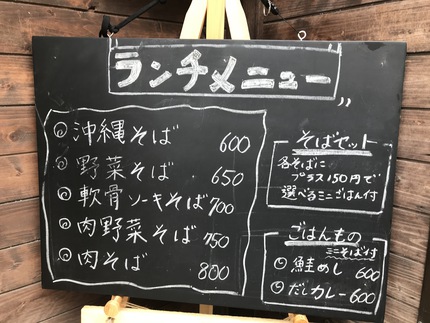 ランチメニュー
沖縄そば 600
野菜そば 650
軟骨ソーキそば 700
肉野菜そば 750
肉そば 800
そばセット
各そばに
プラス150円で
選べるミニごはん付
ごはんもの
ミニそば付
鮭めし 600
だしカレー 600